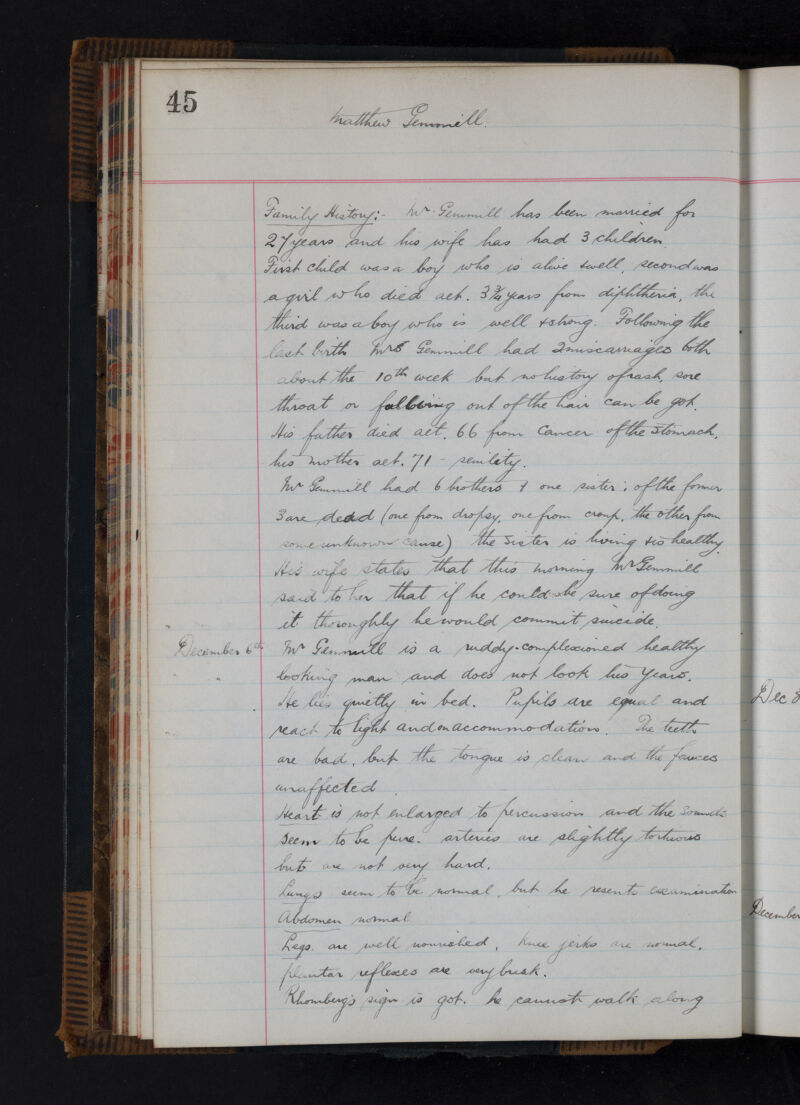 45
Matthew Gemmill.
Family History:- Mr. Gemmill has been married for
27 years and his wife has had 3 children.
First child was a boy who is alive & well, second was
a girl who died aet. 3¾ years from diphtheria, the
third was a boy who is well & strong. Following the
last birth Mrs Gemmill had 2 miscarriages both
about the 10th week but no history of rash, sore
throat or falling out of the hair can be got.
His father died aet. 66 from Cancer of the Stomach,
his mother aet. 71 - senility.
Mr Gemmill had 6 brothers & one sister; of the former
3 are dead (one from dropsy, one from croup, the other from
some unknown cause) the sister is living & is healthy.
His wife states that this morning Mr Gemmill
said to her that if he could be sure of doing
it thoroughly he would commit suicide.
December 6th Mr Gemmill is a ruddy-complexioned healthy
looking man and does not look his years.
He lies quietly in bed. Pupils are equal and
react to light and on accommodation. The teeth
are bad, but the tongue is clean and the fauces
unaffected.
Heart is not enlarged to percussion and the sounds
seem to be pure. arteries are slightly tortuous
but are not very hard.
Lungs seem to be normal, but he resents examination
Abdomen normal
Legs. are well nourished, knee jerks are normal.
plantar reflexes are very brisk.
Rhomberg's sign is got. he cannot walk along
Dec 8
December